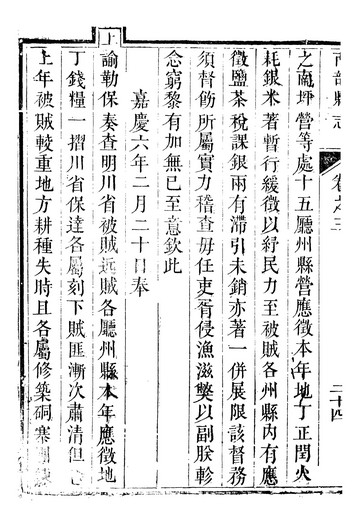 南部縣志
卷之三
二十四
之南坪營等處十五廳州縣營應徵本年地丁正閏火
耗銀米著暫行緩徵以紓民力至被賊各州縣內有應
徵鹽茶稅課銀兩有滯引未銷亦著一併展限該督務
須督飭所屬實力稽查毋任吏胥侵漁滋弊以副朕軫
念窮黎有加無已至意欽此
嘉慶六年二月二十日奉
上
諭勒保奏查明川省被賊近賊各廳州縣本年應徵地
丁錢糧一摺川省保達各屬刻下賊匪漸次肅清但
上年被賊較重地方耕種失時且各屬修築碉寨